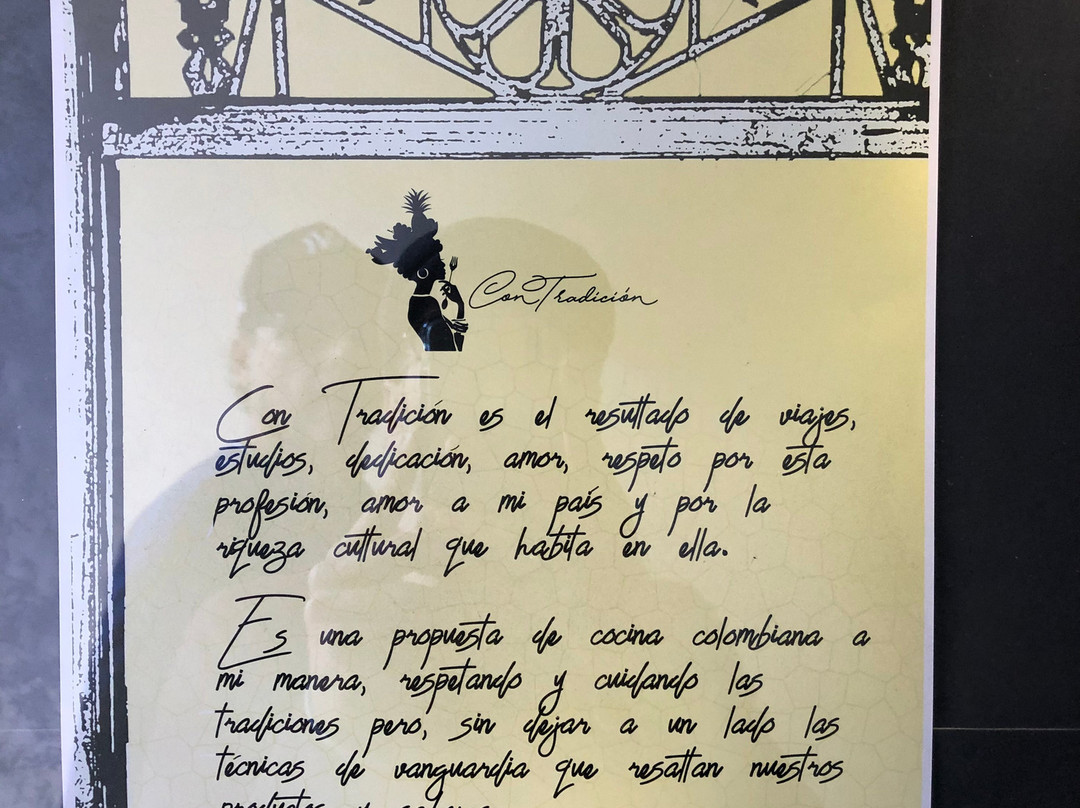 ConTradición
Con Tradición es el resultado de viajes,
estudios, dedicación, amor, respeto por esta
profesión, amor a mi país y por la
riqueza cultural que habita en ella.
Es una propuesta de cocina colombiana a
mi manera, respetando y cuidando las
tradiciones pero, sin dejar a un lado las
técnicas de vanguardia que resaltan nuestros
productos y